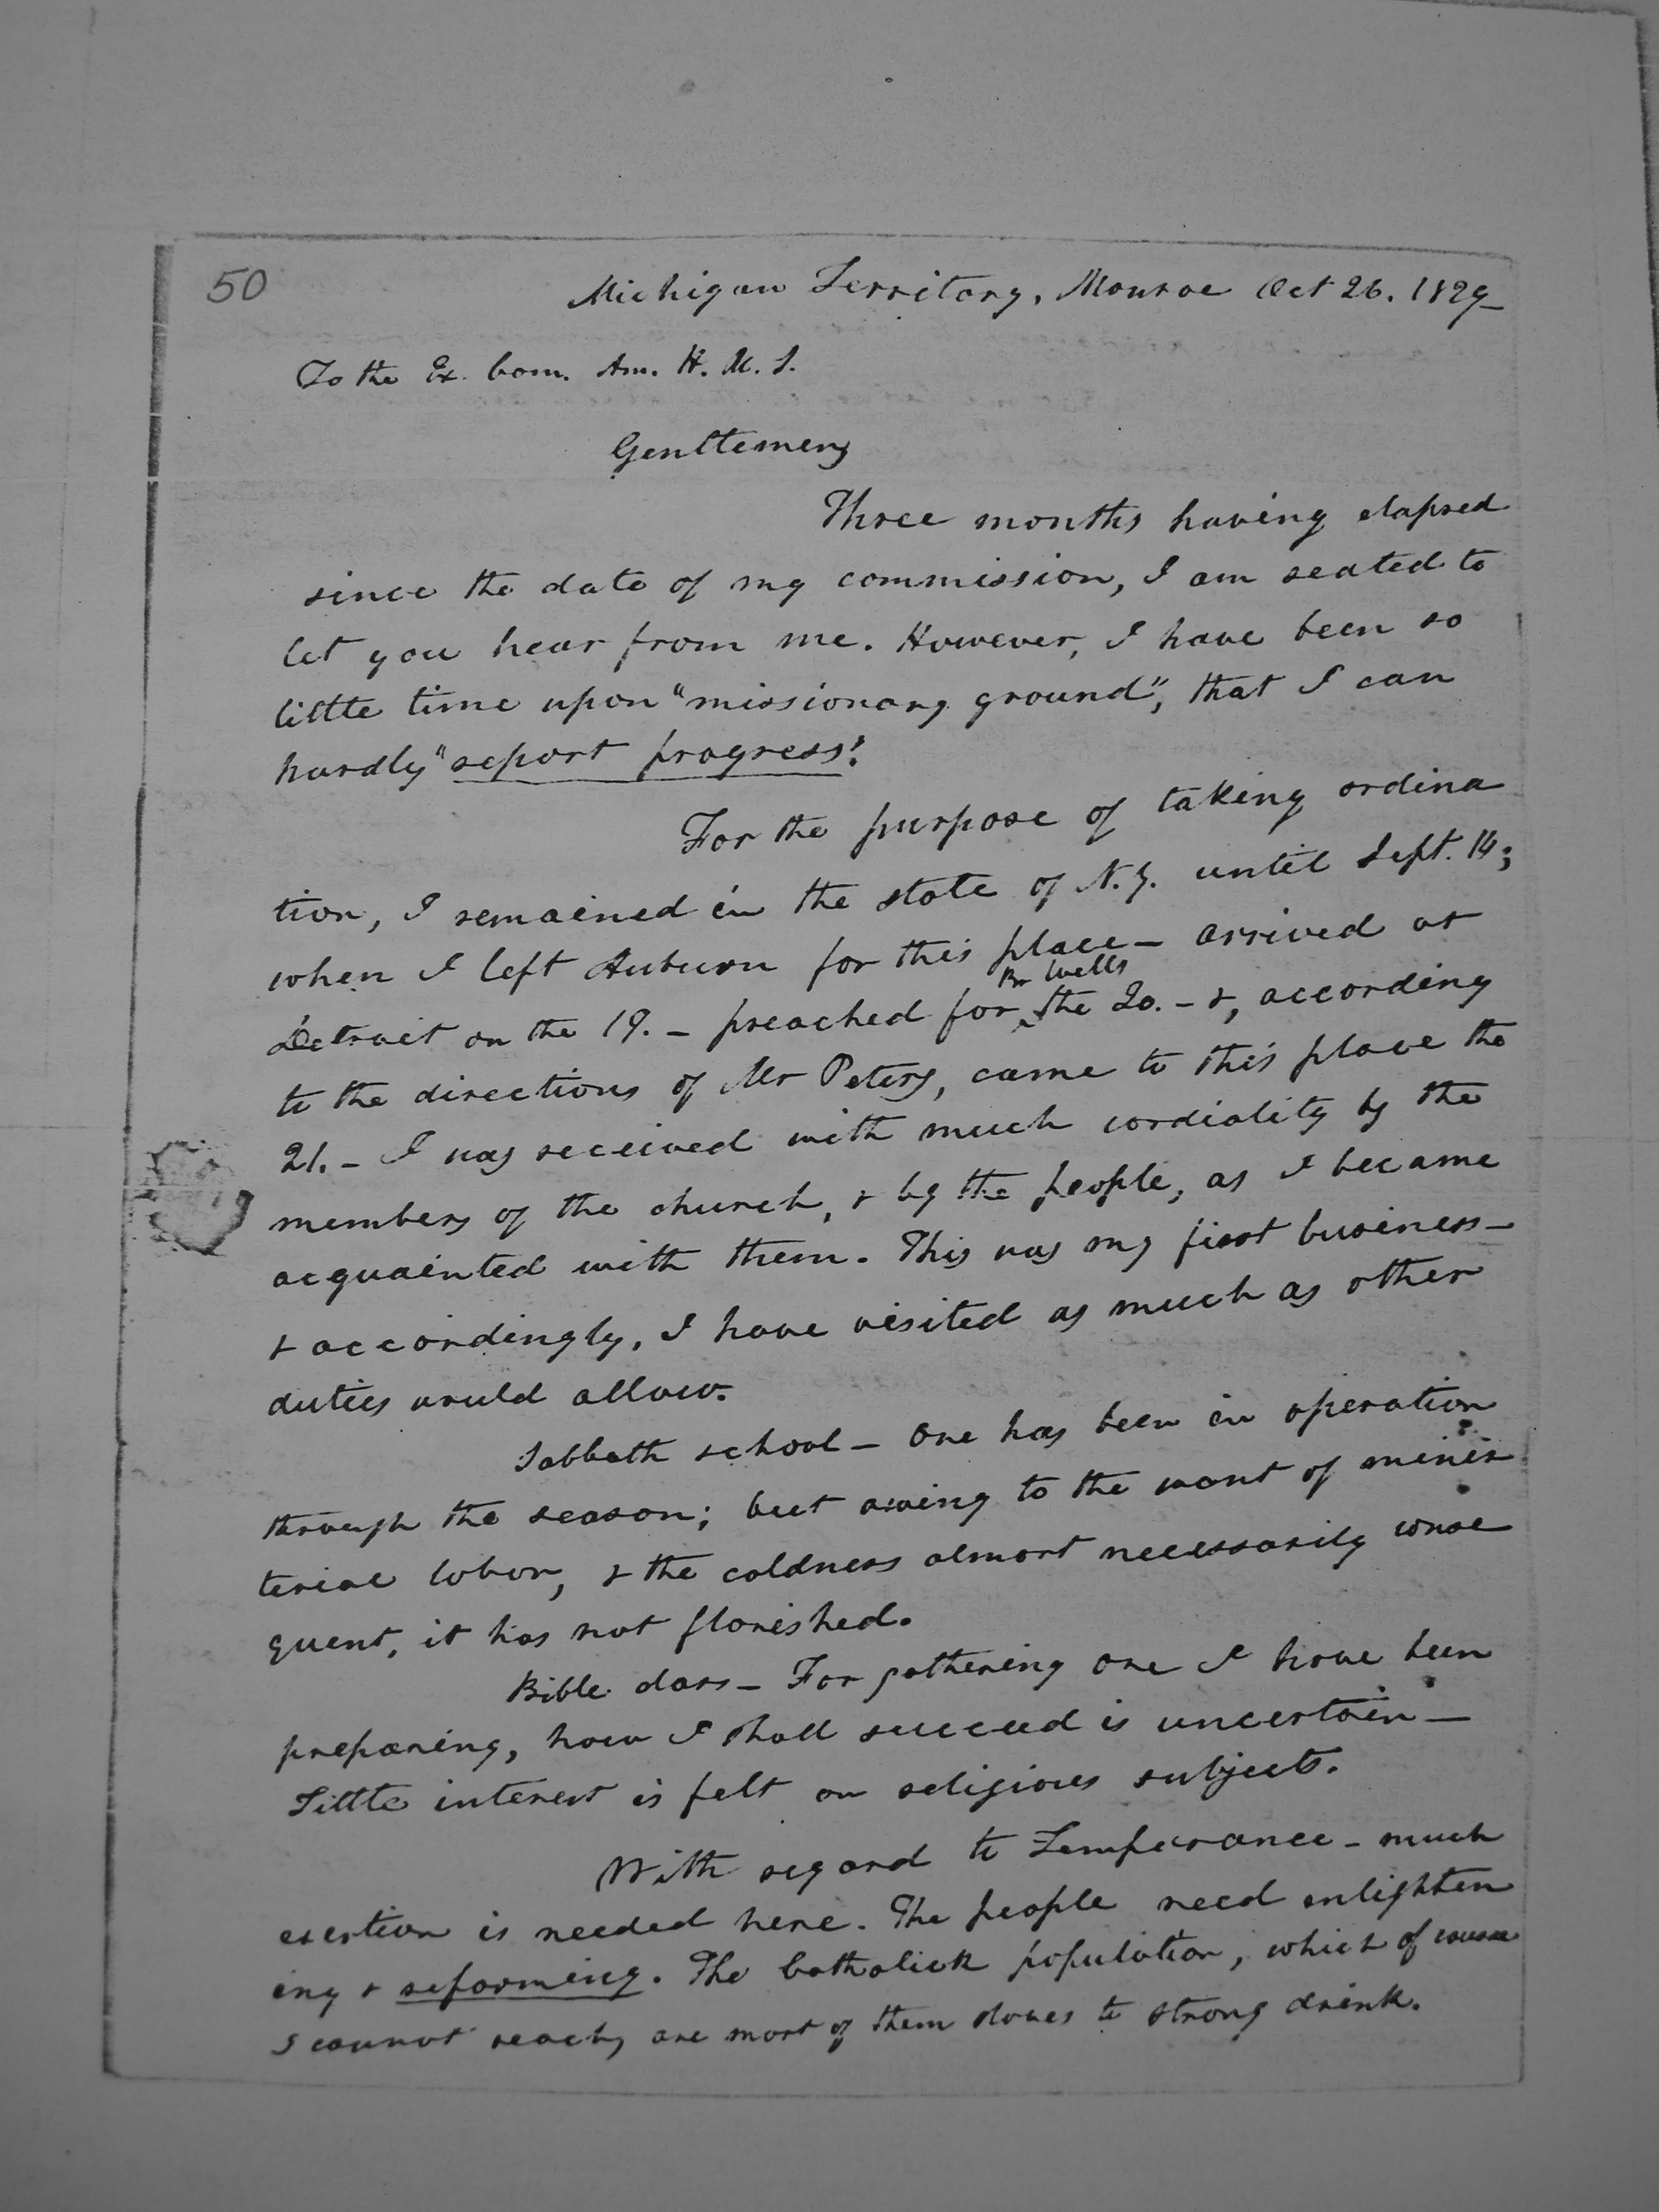 50
Michigan Territory, Monroe Oct 26. 1829
To the Ex. Com. Am. H. M. S.
Gentlemen,
Three months having elapsed
since the date of my commission, I am seated to
let you hear from me. However, I have been so
little time upon "missionary ground", that I can
hardly "report progress!
For the purpose of taking ordina
tion, I remained in the state of N.Y. until Sept. 14;
when I left Auburn for this place — arrived at
Br Wells
Detroit on the 19. — preached for ‸ the 20. — &, according
to the directions of Mr Peters, came to this place the
21. — I was received with much cordiality by the
members of the church, & by the people, as I became
acquainted with them. This was my first business —
& accordingly, I have visited as much as other
duties would allow.
Sabbath school — One has been in operation
through the season; but owing to the want of minis
terial labor, & the coldness almost necessarily conse
quent, it has not florished.
Bible class — For gathering one I have been
preparing, how I shall succeed is uncertain —
Little interest is felt on religious subjects.
With regard to Temperance — much
exertion is needed here. The people need enlighten
ing & reforming. The Catholick population, which of course
I cannot reach, are most of them slaves to strong drink.